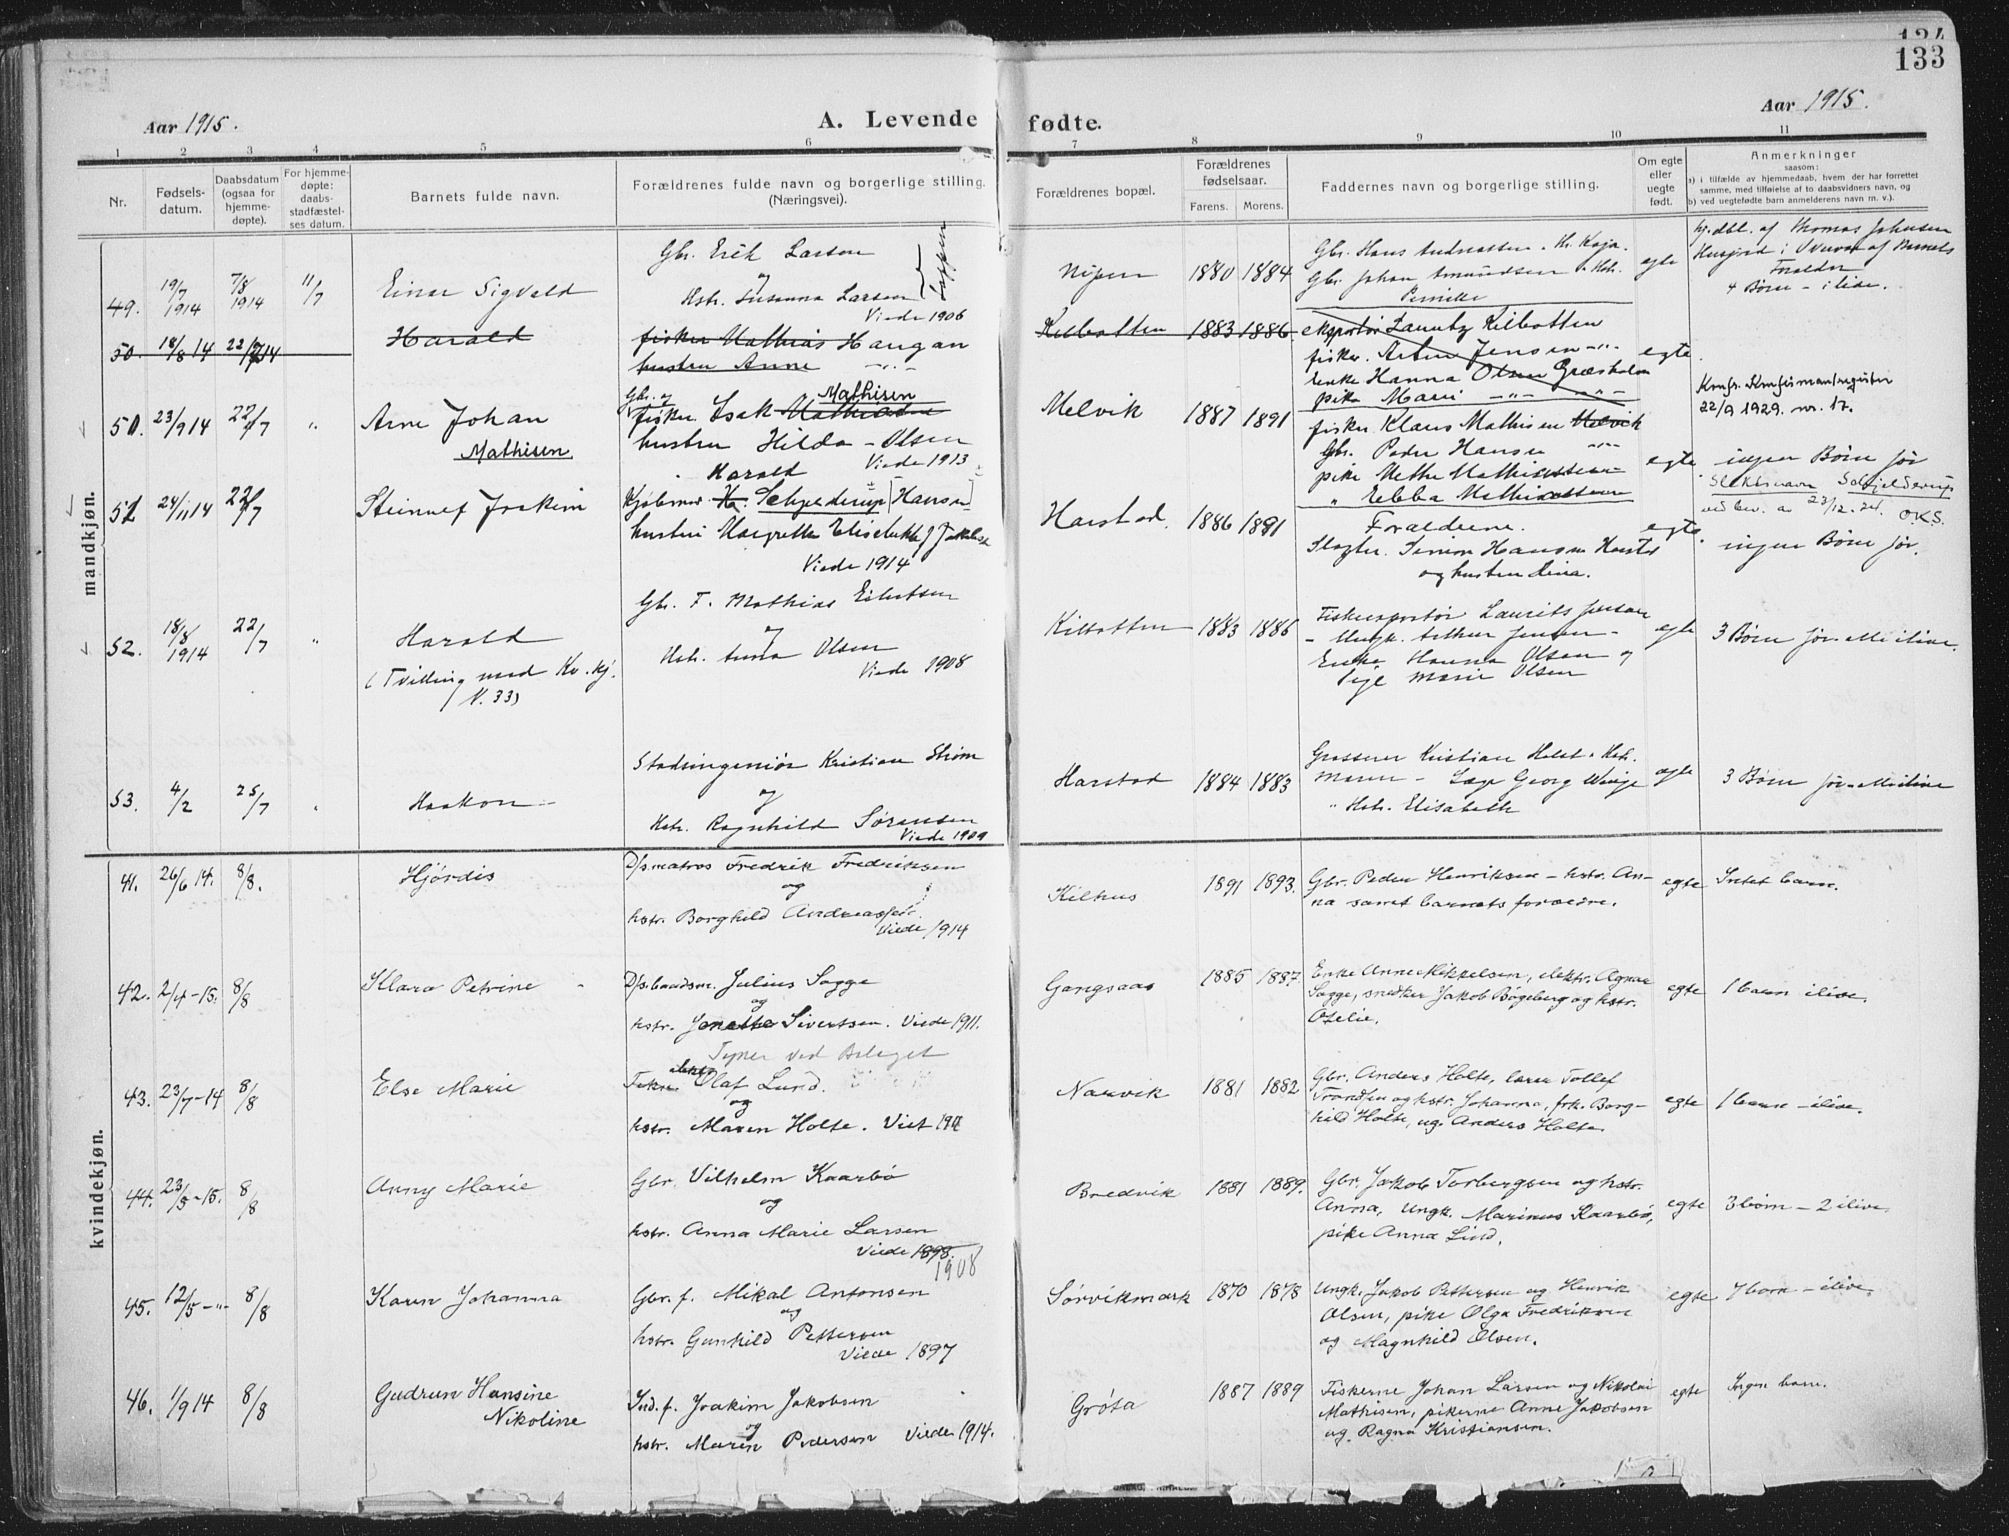 134
133
Aar 1915.
A. Levende fødte.
Aar 1915.
1 2 3 4 5 6 7 8 9 10 11
Nr.
Fødsels-
datum.
Daabsdatum
(ogsaa for
hjemme-
døpte).
For hjemme-
døpte:
daabs-
stadfæstel-
ses datum.
Barnets fulde navn.
Forældrenes fulde navn og borgerlige stilling.
(Næringsvei).
Forældrenes bopæl.
Forældrenes
fødselsaar.
Farens. Morens.
Faddernes navn og borgerlige stilling.
Om egte
eller
uegte
født.
Anmerkninger
saasom:
a) i tilfælde av hjemmedaab, hvem der har forrettet
samme, med tilføielse af to daabsvidners navn, og
b) ved uegtefødte barn anmelderens navn m. v.).
mandkjøn.
49. 19/7 1914 7/8 1914 11/7
Einar Sigvald
Gbr. Erik Larsen
og
Hstr. Susanna Larsen
Viede 1906
1880 1884
Gbr. Johan Amundsen
Pernille
egte
4 Børn - i live.
50. 18/8 14 22/7 14
Harald
fisker Mathias Haugan
hustru Anne -"-
Kilbotten 1883 1886
Lauritz Kilbotten
fisker. Artur Jensen -"-
Enke Hanna Olsen Græsholm
pike Marie -"-
egte
50. 23/9 14 22/7 "
Arne Johan
Mathisen
Gbr. og Mathisen
fisker Isak
hustru Hilda - Olsen
Viede 1913
Melvik 1887 1891
fisker Klaus Mathisen Melvik
Gbr. Peder Hansen
pike Mathiassen
" Ebba Mathiassen
egte
22/9 1929. nr. 17.
ingen Børn før
51 24/11 14 22/7
Joakim
Harald
Schjelderup Hansen
hustru Margrethe Elisebeth J. Jakobsen
Viede 1914
Harstad. 1886 1891
Forældrene.
Simon Hansen Harstad
og hustru Dina.
egte.
Slektsnavn Schjelderup
ved bev. av 23/12. O.K.S.
ingen Børn før.
52. 18/8 1914 22/7 "
Harald
(Tvilling med Kv. kj.
N. 33)
Gbr. F. Mathias Eilertsen
og
Hstr. Anna Olsen
Viede 1908
Kilbotten 1883 1886
Laurits Jensen
- Ungk. Arthur Jensen -
Enke Hanna Olsen og
Pige Marie Olsen
egte
3 Børn før. Alle i live.
53. 4/2 25/7
Haakon
Stadsingeniør Kristian Strøm
og
Hstr. Ragnhild Sørensen
Viede 1909
Harstad 1884 1883
Grosserer Kristian Holst
Georg Wenge
" Hstr. Elisabeth
egte
3 Børn før. Alle i live
kvindekjøn.
41. 26/6 14. 8/8.
Hjørdis
D/s.matros Fredrik Fredriksen
og
hstr. Borghild Andreassen.
Viede 1914
Kilhus
1891 1893.
Gbr. Peder Henriksen - hstr. An-
na samt barnets forældre.
egte
Intet barn.
42. 2/4 - 15. 8/8
Klara Petrine
D/s.baadsm. Julius Sagge
og
hstr. Jenette Sivertsen. Viede 1911.
Gangsaas
1885 1887.
Enke Anne Mikkelsen, elektr. Agnar
Sagge, snedker Jakob Bøgeberg og hstr.
Otelie.
egte
1 barn i live.
43. 23/7 - 14 8/8
Else Marie
Typer ved Belaget
Olaf Lund.
og
hstr. Maren Holte. Viet 1911
Narvik
1881 1882
Gbr. Anders Holte, lærer Tollef
Trondsen og hstr. Johanna, frk. Borg-
hild Holte, ug. Anders Holte.
egte
1 barn - i live.
44. 23/5 - 15. 8/8
Anny Marie
Gbr. Vilhelm Kaarbø
og
hstr. Anna Marie Larsen
Viede 1898.
1908
Bredvik
1881 1889.
Gbr. Jakob Torbergsen og hstr.
Anna, ungk. Marinus Kaarbø,
pike Anna Lind.
egte
3 børn - 2 i live.
45. 12/5 -"- 8/8
Karen Johanna
Gbr. f. Mikal Antonsen
og
hstr. Gunhild Pettersen
Viede 1897
Sørvikmark
1870 1878
Ungk. Jakob Pettersen og Henrik
Olsen, pike Olga Fredriksen
og Magnhild Olsen.
egte
7 barn - i live.
46. 1/9 14 8/8
Gudrun Hansine
Nikoline
Ind. f. Joakim Jakobsen
og
hstr. Maren Pedersen Viede 1914.
Grøta
1887 1889
Fiskerne Johan Larsen og Nikolai
Mathisen, pikerne Anne Jakobsen
og Ragna Kristiansen.
egte
Ingen barn.